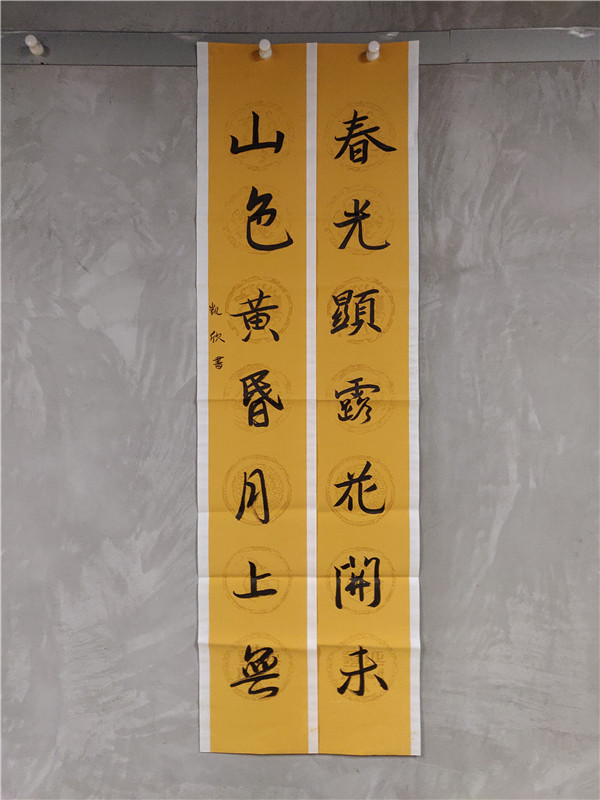 春光顯露花開未
山色黃昏月上無
凱欣書